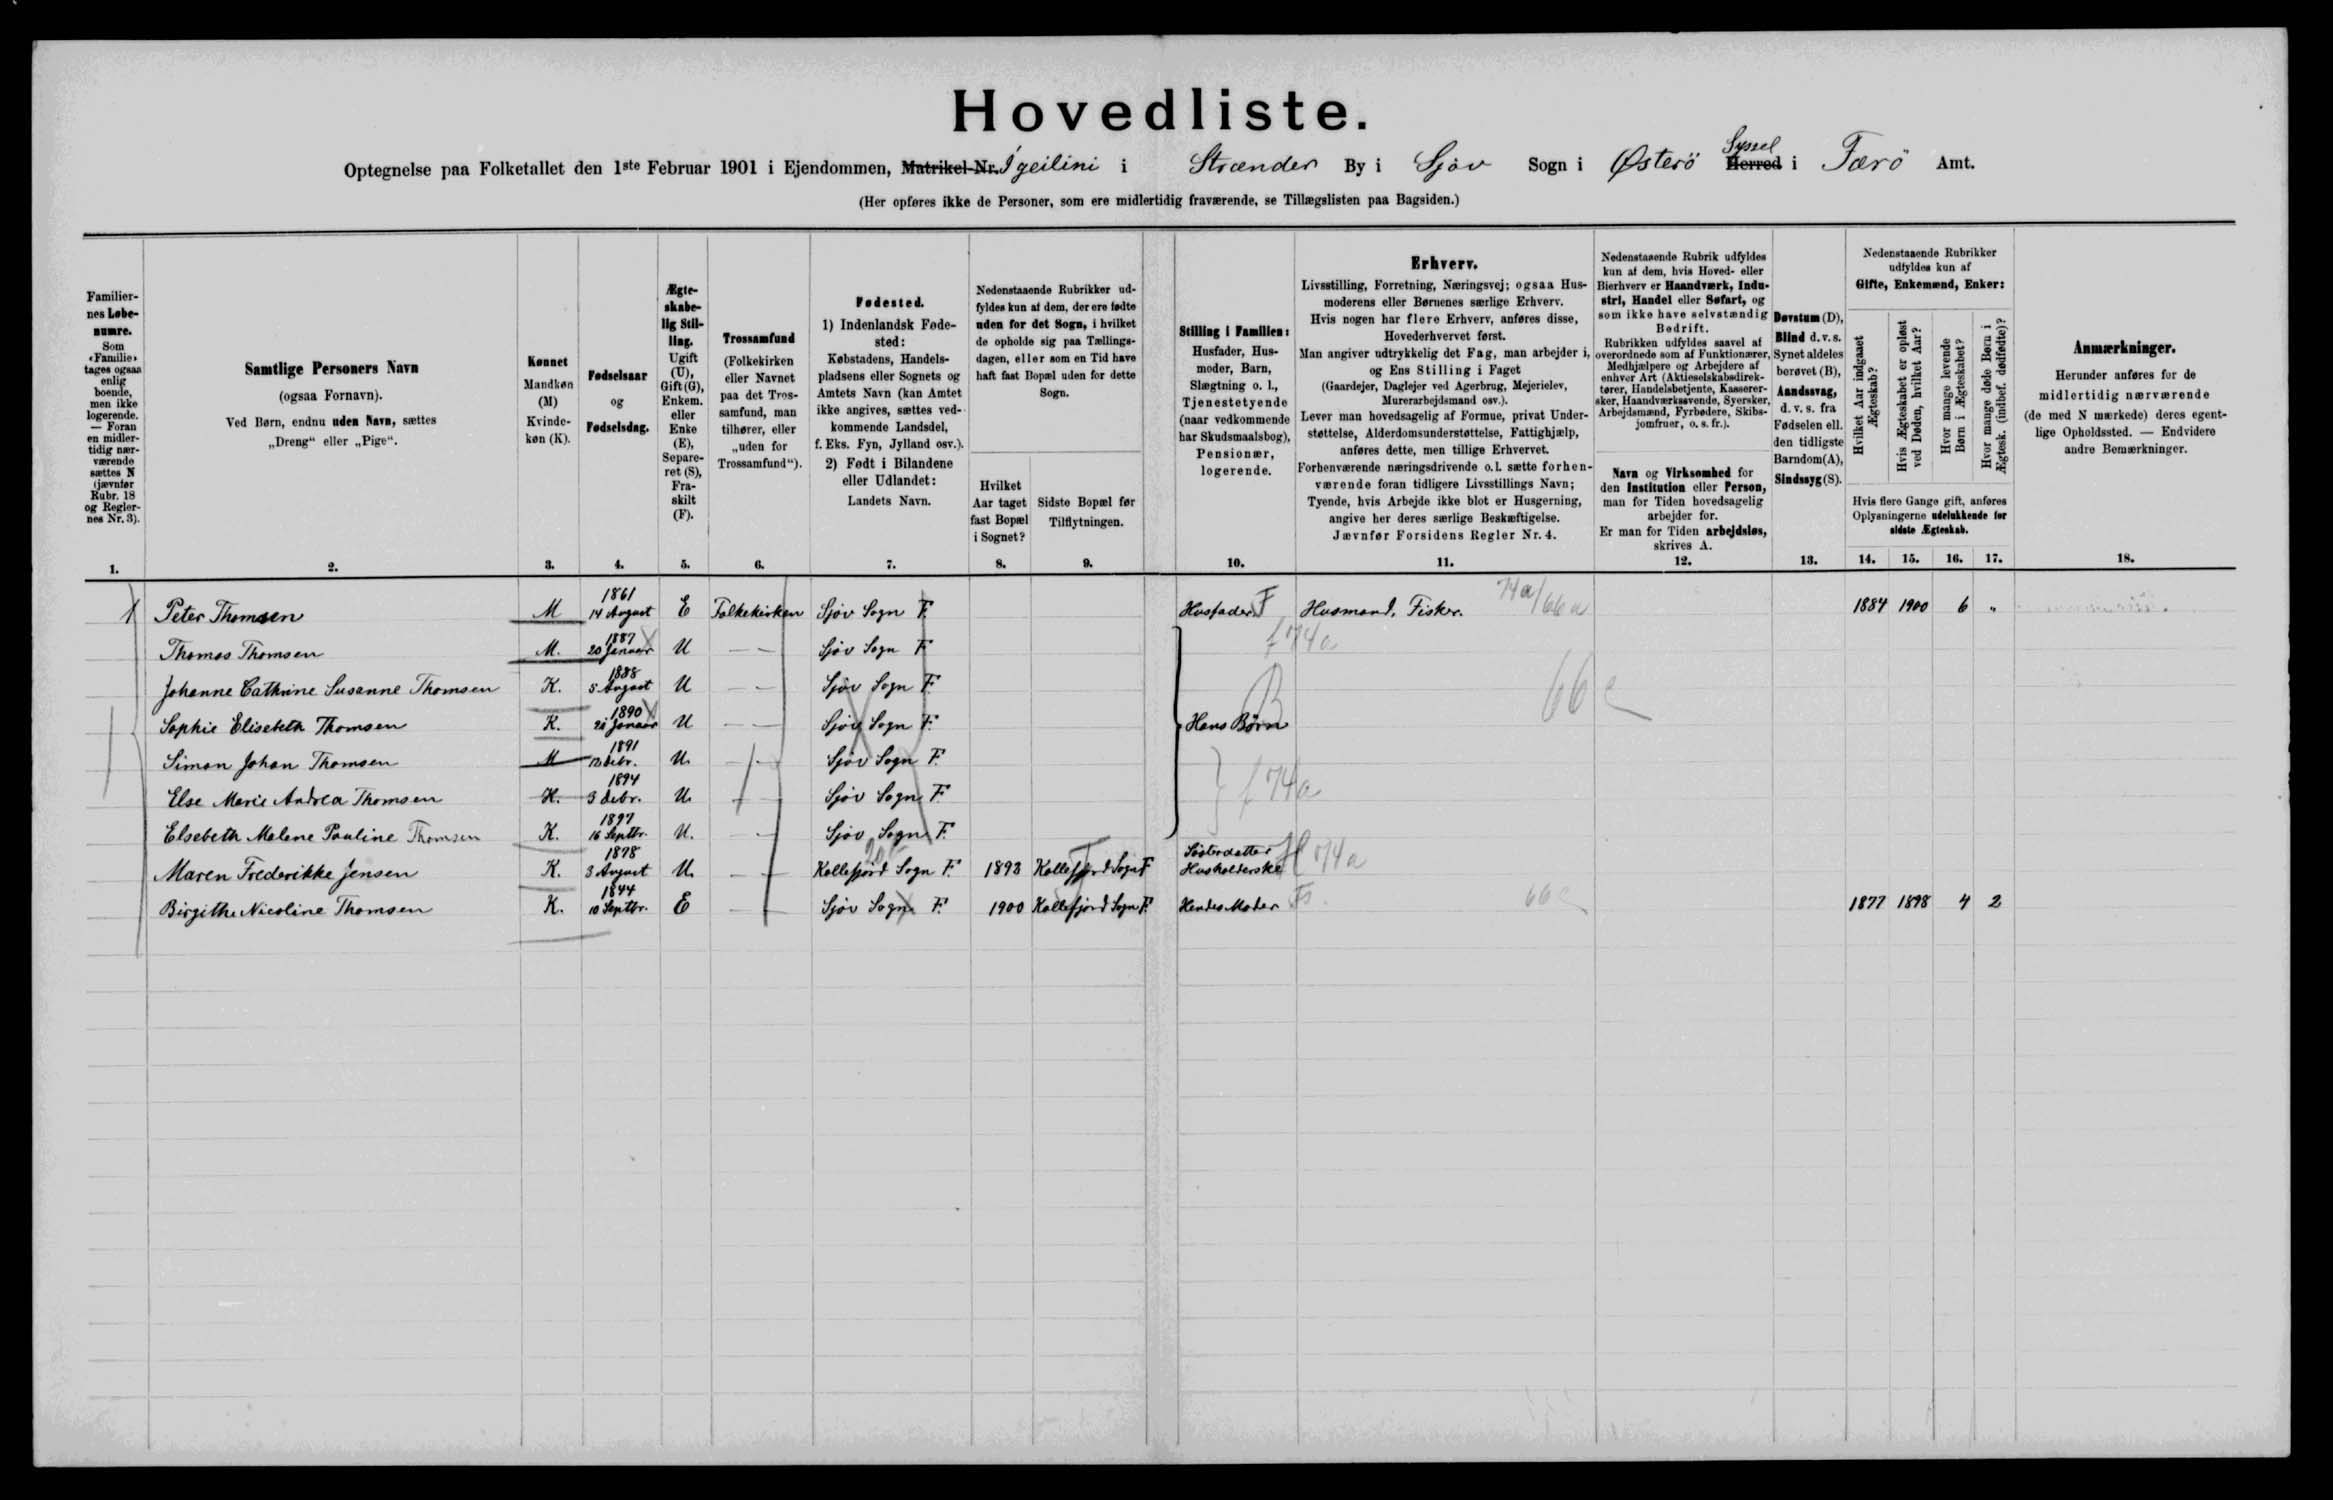 Hovedliste.
Optegnelse paa Folketallet den 1ste Februar 1901 i Ejendommen, Matrikel-Nr. Igeilini i Strænder By i Sjöv Sogn i Österö Herred Syssel i Færö Amt.
(Her opføres ikke de Personer, som ere midlertidig fraværende, se Tillægslisten paa Bagsiden.)
Familiernes Løbenumre.
Som «Familie» tages ogsaa enlig boende, men ikke logerende. — Foran en midlertidig nærværende sættes N (jævnfør Rubr. 18 og Reglernes Nr. 3).
1.
Samtlige Personers Navn
(ogsaa Fornavn).
Ved Børn, endnu uden Navn, sættes
„Dreng“ eller „Pige“.
2.
Kønnet
Mandkøn (M)
Kvindekøn (K).
3.
Fødselsaar
og
Fødselsdag.
4.
Ægteskabelig Stilling.
Ugift (U), Gift (G), Enkem. eller Enke (E), Separeret (S), Fraskilt (F).
5.
Trossamfund
(Folkekirken eller Navnet paa det Trossamfund, man tilhører, eller „uden for Trossamfund“).
6.
Fødested.
1) Indenlandsk Fødested:
Købstadens, Handelspladsens eller Sognets og Amtets Navn (kan Amtet ikke angives, sættes vedkommende Landsdel, f. Eks. Fyn, Jylland osv.).
2) Født i Bilandene eller Udlandet:
Landets Navn.
7.
Nedenstaaende Rubrikker udfyldes kun af dem, der ere fødte uden for det Sogn, i hvilket de opholde sig paa Tællingsdagen, eller som en Tid have haft fast Bopæl uden for dette Sogn.
Hvilket Aar taget fast Bopæl i Sognet?
8.
Sidste Bopæl før Tilflytningen.
9.
Stilling i Familien:
Husfader, Husmoder, Barn, Slægtning o. l., Tjenestetyende (naar vedkommende har Skudsmaalsbog), Pensionær, logerende.
10.
Erhverv.
Livsstilling, Forretning, Næringsvej; ogsaa Husmoderens eller Børnenes særlige Erhverv.
Hvis nogen har flere Erhverv, anføres disse, Hovederhvervet først.
Man angiver udtrykkelig det Fag, man arbejder i, og Ens Stilling i Faget
(Gaardejer, Daglejer ved Agerbrug, Mejerielev, Murerarbejdsmand osv.).
Lever man hovedsagelig af Formue, privat Understøttelse, Alderdomsunderstøttelse, Fattighjælp, anføres dette, men tillige Erhvervet.
Forhenværende næringsdrivende o. l. sætte forhenværende foran tidligere Livsstillings Navn;
Tyende, hvis Arbejde ikke blot er Husgerning, angive her deres særlige Beskæftigelse.
Jævnfør Forsidens Regler Nr. 4.
11.
Nedenstaaende Rubrik udfyldes kun af dem, hvis Hoved- eller Bierhverv er Haandværk, Industri, Handel eller Søfart, og som ikke have selvstændig Bedrift.
Rubrikken udfyldes saavel af overordnede som af Funktionærer, Medhjælpere og Arbejdere af enhver Art (Aktieselskabsdirektører, Handelsbetjente, Kasserersker, Haandværkssvende, Syersker, Arbejdsmænd, Fyrbødere, Skibsjomfruer, o. s. fr.).
Navn og Virksomhed for den Institution eller Person, man for Tiden hovedsagelig arbejder for.
Er man for Tiden arbejdsløs, skrives A.
12.
Døvstum (D),
Blind d. v. s. Synet aldeles berøvet (B),
Aandssvag, d. v. s. fra Fødselen ell. den tidligste Barndom (A),
Sindssyg (S).
13.
Nedenstaaende Rubrikker udfyldes kun af
Gifte, Enkemænd, Enker:
Hvilket Aar indgaaet Ægteskab?
Hvis Ægteskabet er opløst ved Døden, hvilket Aar?
Hvor mange levende Børn i Ægteskabet?
Hvor mange døde Børn i Ægtesk. (indbef. dødfødte)?
Hvis flere Gange gift, anføres Oplysningerne udelukkende for sidste Ægteskab.
14. 15. 16. 17.
Anmærkninger.
Herunder anføres for de midlertidig nærværende (de med N mærkede) deres egentlige Opholdssted. — Endvidere andre Bemærkninger.
18.
1 Peter Thomsen M 1861 14 August E Folkekirken Sjöv Sogn F. Husfader F Husmand, Fisker. 74a/66a 1884 1900 6 "
Thomas Thomsen M. 1887 20 Januar U — — Sjöv Sogn F f 74a
Johanne Cathrine Susanne Thomsen K. 1888 5 August U — — Sjöv Sogn F.
Sophie Elisebeth Thomsen K. 1890 20 Januar U — — Sjöv Sogn F. Hans Børn B 66c
Simon Johan Thomsen M 1891 13 Debr. U. — — Sjöv Sogn F.
Else Marie Andrea Thomsen K. 1894 3 Debr. U. — — Sjöv Sogn F. f 74a
Elsebeth Malene Pauline Thomsen K. 1897 16 Septbr. U. — — Sjöv Sogn F.
Maren Frederikke Jensen K. 1878 3 August U. — — Kollefjord Sogn F. 1893 Kollefjord Sogn F Søsterdatter Husholderske H 74a
Birgithe Nicoline Thomsen K. 1844 10 Septbr. E — — Sjöv Sogn F. 1900 Kollefjord Sogn F. Hendes Moder Fs. 66c 1877 1898 4 2